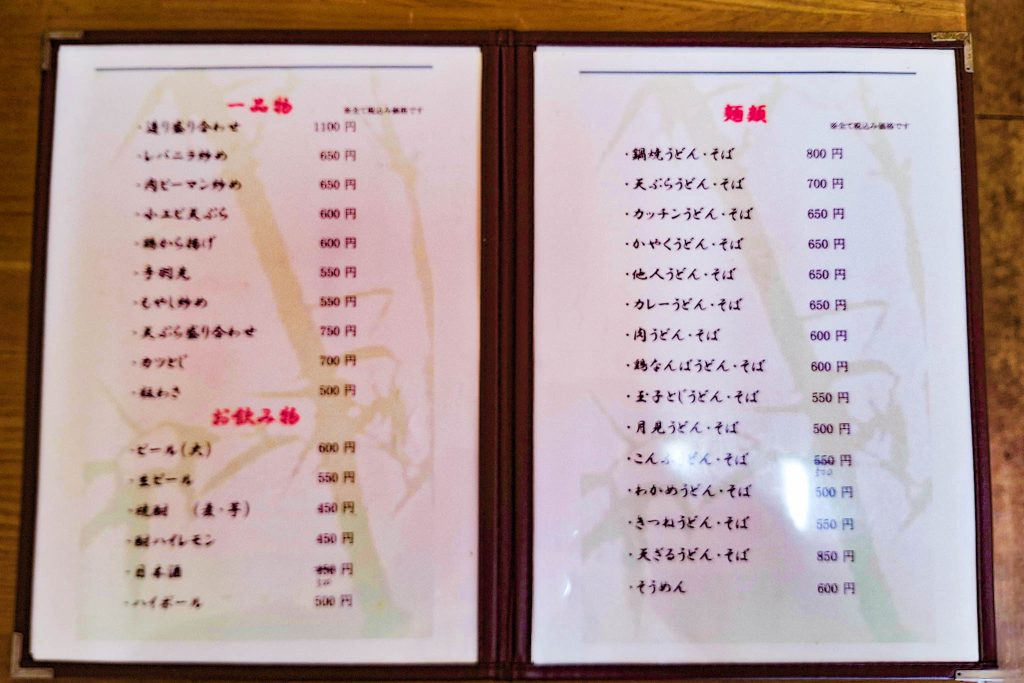 一品物
※全て税込み価格です
・造り盛り合わせ 1100 円
・レバニラ炒め 650 円
・肉ピーマン炒め 650 円
・小エビ天ぷら 600 円
・鶏から揚げ 600 円
・手羽先 550 円
・もやし炒め 550 円
・天ぷら盛り合わせ 750 円
・カツとじ 700 円
・板わさ 500 円
お飲み物
・ビール(大) 600 円
・生ビール 550 円
・焼酎 (麦・芋) 450 円
・酎ハイレモン 450 円
・日本酒 円
・ハイボール 500 円
麺類
※全て税込み価格です
・鍋焼うどん・そば 800 円
・天ぷらうどん・そば 700 円
・カッチンうどん・そば 650 円
・かやくうどん・そば 650 円
・他人うどん・そば 650 円
・カレーうどん・そば 650 円
・肉うどん・そば 600 円
・鶏なんばうどん・そば 600 円
・玉子とじうどん・そば 550 円
・月見うどん・そば 500 円
・こんぶうどん・そば 550 円
500
・わかめうどん・そば 500 円
・きつねうどん・そば 550 円
・天ざるうどん・そば 850 円
・そうめん 600 円